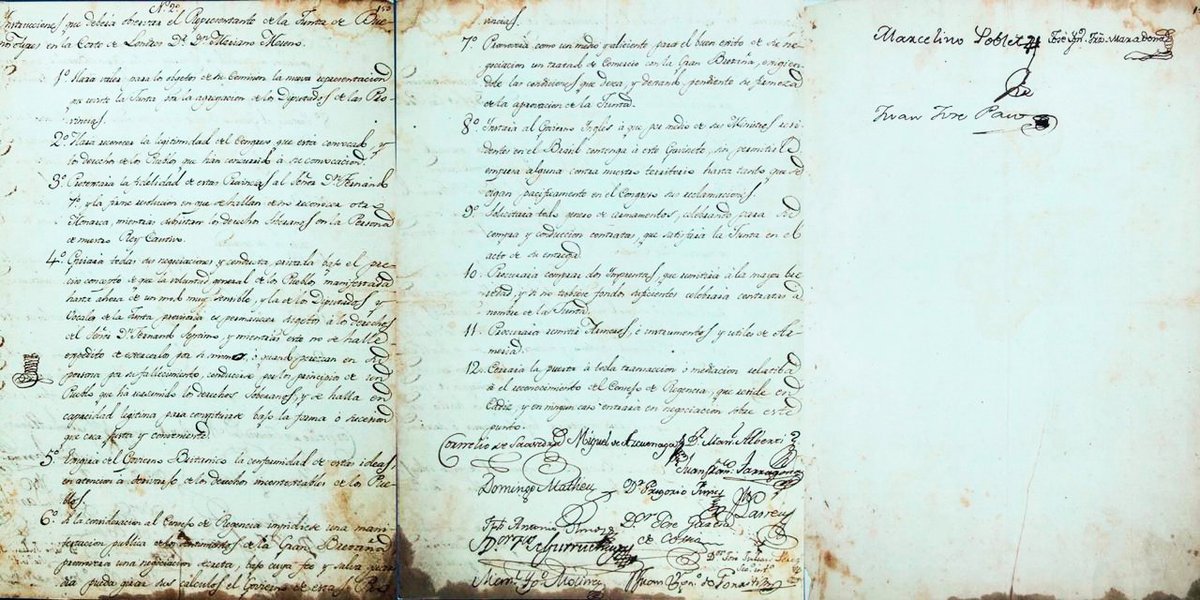 Nº 2º
150
Instrucciones que deberá observar el Representante de la Junta de Bue-
nos Ayres en la Corte de Londres Dr. Dn. Mariano Moreno.
1º Hará valer para los objetos de su Comision la nueva representacion
que reviste la Junta por la agregacion de los Diputados de las Pro-
vincias.
2º Hará reconocer la legitimidad del Congreso que está convocado, y
los derechos de los Pueblos que han concurrido à su convocacion.
3º Protestará la fidelidad de estas Provincias al Señor Dn. Fernando
7º, y la firme resolucion en que se hallan de no reconocer otro
Monarca, mientras subsistan los derechos Soberanos en la Persona
de nuestro Rey Cautivo.
4º todas sus negociaciones y conducta privada bajo el pre-
ciso concepto de que la voluntad general de los Pueblos manifestada
hasta ahora de un modo muy sensible, y la de los Diputados y
Vocales de la Junta Provisoria es permanecer sugetos à los derechos
del Señor Dn. Fernando Septimo, y mientras este no se halle
expedito de exercerlos por si mismo, ò quando perezcan en su
persona por su fallecimiento, conducirse por los principios de un
Pueblo que ha reasumido los derechos Soberanos, y se halla en
capacidad legitima para constituirse bajo la forma ò sucesion
que crea justa y conveniente.
5º Exigirá del Govierno Britanico la conformidad de estas ideas,
en atencion à derivarse de los derechos incontestables de los Pue-
blos.
6º Si la consideracion al Consejo de Regencia impidiese una mani-
festacion publica de los sentimientos de la Gran Bretaña,
promoverá una negociacion secreta, bajo cuya fee y salva guar-
dia pueda girar sus calculos el Govierno de estas Pro-
vincias.
7º Promoverá como un medio para el buen exito de su ne-
gociacion un tratado de Comercio con la Gran Bretaña, exigien-
dole las condiciones que desea, y dexando pendiente su firmeza
de la aprovacion de la Junta.
8º Instará al Govierno Ingles à que por medio de sus Ministros resi-
dentes en el Brasil contenga à este Gavinete, sin permitirle
empresa alguna contra nuestro territorio hasta tanto que se
oigan pacificamente en el Congreso sus reclamaciones.
9º Solicitará todo genero de armamentos, celebrando para su
compra y conduccion contratas, que satisfaria la Junta en el
acto de su entrega.
10. Procurará comprar dos Imprentas, que remitirá à la mayor bre-
vedad, y si no tubiese fondos suficientes celebrará contratas à
nombre de la Junta.
11. Procurará remitir Armeros, è instrumentos y utiles de Ar-
meria.
12. Cerrará la puerta à toda transaccion ò mediacion relativa
à el reconocimiento del Consejo de Regencia, que reside en
Cadiz, y en ningun caso entrará en negociacion sobre este
punto.
Cornelio de Saavedra Miguel de Azcuenaga Dr. Manl. Alberti
Juan Franco. Tarragona
Domingo Matheu Dr. Gregorio Funes
Larrea
Antonio Olmos Dr. Jose Garcia
de Cossio
Dr. Gurruchaga
Manl. Ygno. Molina Juan Ygno. de Gorostiaga
Marcelino Poblet
Jose Ygn. Maradona
Juan Jose Paso